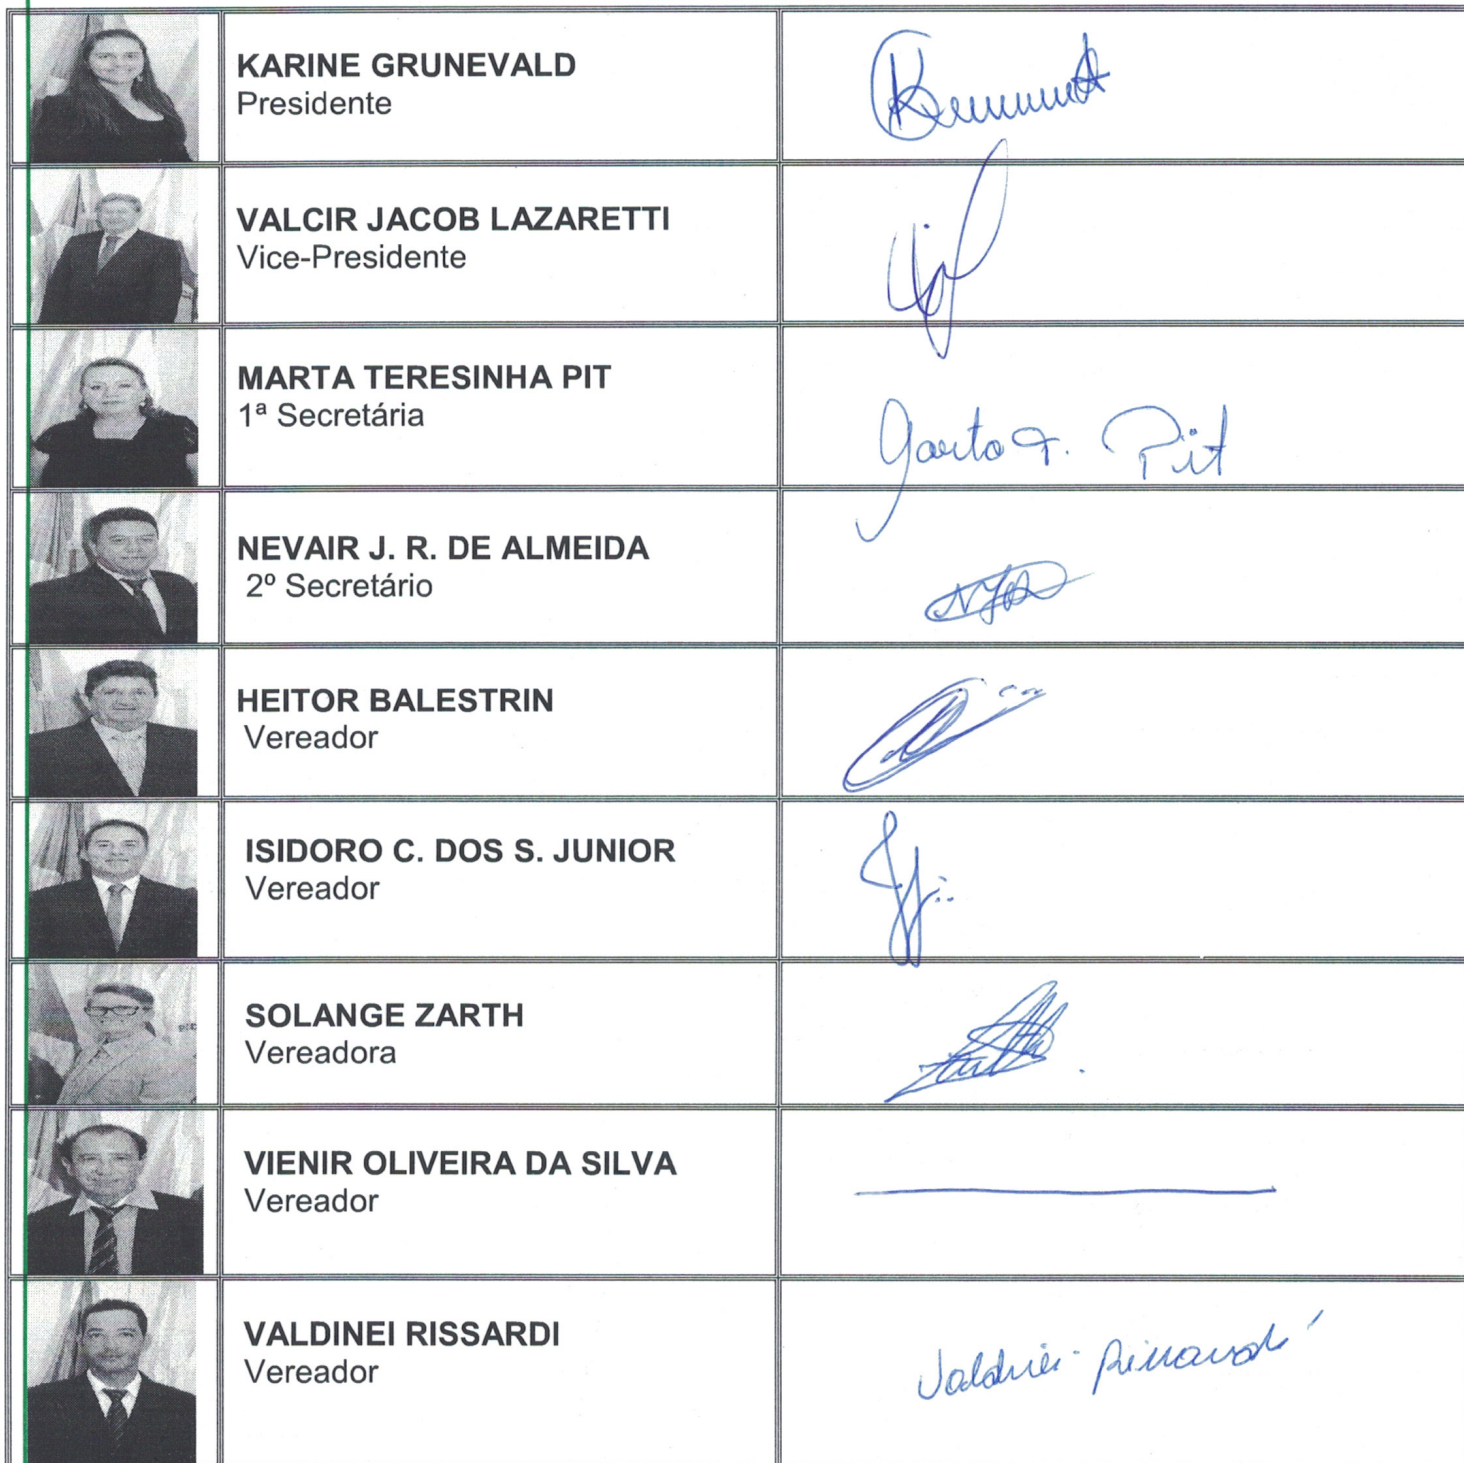 KARINE GRUNEVALD
Presidente
VALCIR JACOB LAZARETTI
Vice-Presidente
MARTA TERESINHA PIT
1ª Secretária
T. Pit
NEVAIR J. R. DE ALMEIDA
2º Secretário
HEITOR BALESTRIN
Vereador
ISIDORO C. DOS S. JUNIOR
Vereador
SOLANGE ZARTH
Vereadora
VIENIR OLIVEIRA DA SILVA
Vereador
VALDINEI RISSARDI
Vereador
Valdinei Rissardi